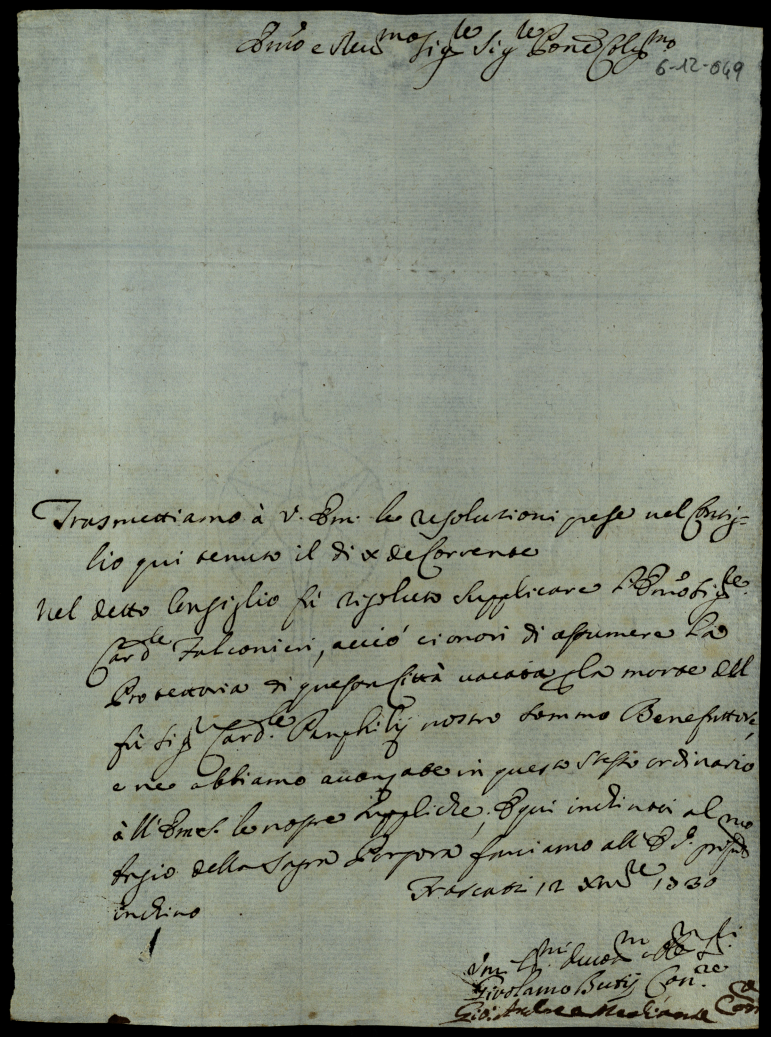 Emo e Reu.mo Sig.re Sig.re Pone Col.mo
6-12-049
Trasmettiamo à V. Em. le resolutioni prese nel Consig=
lio qui tenuto il di x de Corrente
Nel detto Consiglio fù risoluto supplicare l'Emo Sig.re
Card.le Falconieri, acciò ci onori di assumere la
Protettoria di questa Città vacata p la morte del
fù Sig.r Card.le Panphilij nostro sommo Benefattore,
e ne abbiamo auanzate in questo stesso ordinario
à ll' Em.S. le nostre suppliche; E qui inchinati al
della Sagra Porpora facciamo all' E.V. prof.mo
inchino
Frascati 12 Xmbre 1730
Girolamo Butij Con.re
Gio: Andrea